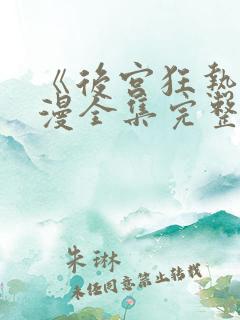 《後宮狂熱
漫全集完整
朱琳
未经同意禁止转载